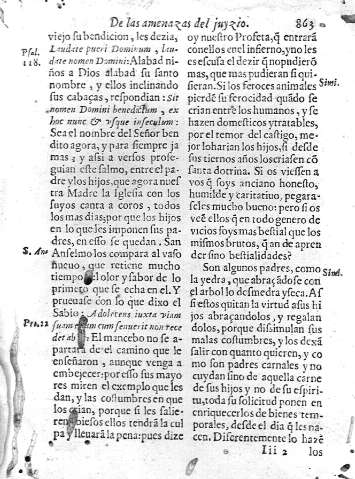 De las amenazas del juyzio.
863
viejo su bendicion, les dezia,
Laudate pueri Dominum, lau-
date nomen Domini: Alabad ni-
ños a Dios alabad su santo
nombre, y ellos inclinando
sus cabaças, respondian: Sit
nomen Domini benedictum, ex
hoc nunc & vsque insęculum:
Sea el nombre del Señor ben
dito agora, y para siempre ja
mas; y assi a versos prose-
guian este salmo, entre el pa-
dre y los hijos, que agora nues
tra Madre la Iglesia con los
suyos canta a coros, todos
los mas dias, por que los hijos
en lo que les imponen sus pa-
dres, en esso se quedan. San
Anselmo los compara al vaso
nueuo, que retiene mucho
tiempo el olor y sabor de lo
primero que se echa en el. Y
prueuase con lo que dixo el
Sabio: Adolescens iuxta viam
suam etiam cum senuerit non rece
det ab
El mancebo no se a-
partara de el camino que le
enseñaron, aunque venga a
embejecer: por esso sus mayo
res miren el exemplo que les
dan, y las costumbres en que
los crian, porque si les salie-
ren biesos ellos tendrã la cul
pa y lleuarà la pena: pues dize
Psal.
118.
S. Ans
Pro. 22
oy nuestro Profeta, q̃ entrarà
con ellos en el infierno, y no les
es escusa el dezir q̃ no pudierõ
mas, que mas pudieran si qui-
sieran. Si los feroces animales
pierdẽ su ferocidad quãdo se
crian entre los humanos, y se
hazen domesticos y tratables,
por el temor del castigo, me-
jor lo harian los hijos, si desde
sus tiernos años los criassen cõ
santa dotrina. Si os viessen a
vos q̃ soys anciano honesto,
humilde y caritatiuo, pegara-
seles mucho bueno: pero si os
veẽ ellos q̃ en todo genero de
vicios soys mas bestial que los
mismos brutos, q̃ an de apren
der sino bestialidades?
Son algunos padres, como
la yedra, que abraçãdose con
el arbol lo desmedra y seca. A
si estos quitan la virtud a sus hi
jos abraçandolos, y regalan
dolos, porque dissimulan sus
malas costumbres, y los dexã
salir con quanto quieren, y co
mo son padres carnales y no
cuydan sino de aquella carne
de sus hijos y no de su espiri-
tu, toda su solicitud ponen en
enriquecerlos de bienes tem-
porales, desde el dia q̃ les na-
cen. Diferentemente lo hazẽ
Simil.
Simi.
Iii 2 los